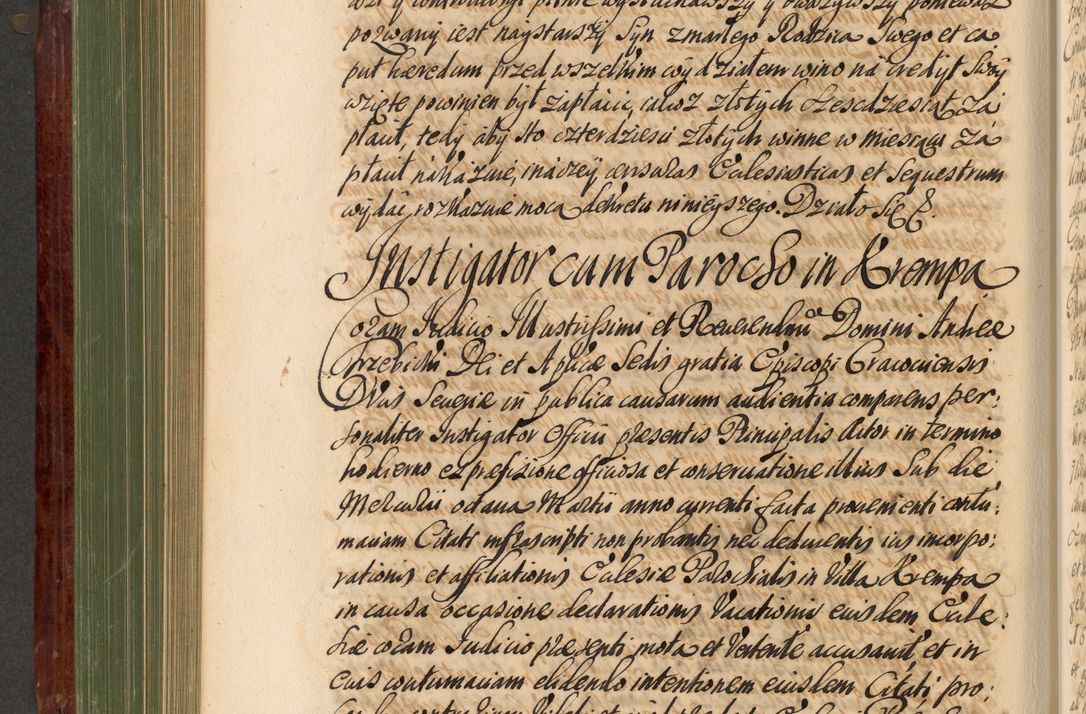 pozwany iest naystarszy Syn zmarłego Rodzica Swego et ca
put haeredum przed wszelkim wydziałem wino na credyt Swoy
wzięte powinien był zapłacić, iakoż złotych sześćdziesiąt za
płacił, tedy aby sto czterdzieści złotych winne w miesiącu za
płacił nakazuie, inaczey censuras Eclesiasticas et Sequestrum
wydać rozkazuie mocą dekretu ninieyszego. Działo Się &.
Instigator cum Parocho in Krempa
Coram Iudicio Illustrissimi et Reverendmi Domini Andreae
Trzebicki Dei et Aplicae Sedis gratia Episcopi Cracoviensis
Ducis Severiae in publica causarum audientia comparens per:
sonaliter Instigator Officii praesentis Principalis Actor in termino
hodierno ex praefixione officiosa et conservatione illius Sub die
Mercurii octava Martii anno currenti facta provenienti contu:
maciam Citati infrascripti non probantis nec deducentis ius incorpo:
rationis et affiliationis Eclesiae Parochialis in Villa Krempa
in causa occasione declarationis Vacationis eiusdem Ecle:
siae coram Iudicio praesenti mota et Vertente accusavit et in
eius contumaciam elidendo intentionem eiusdem Citati pro: